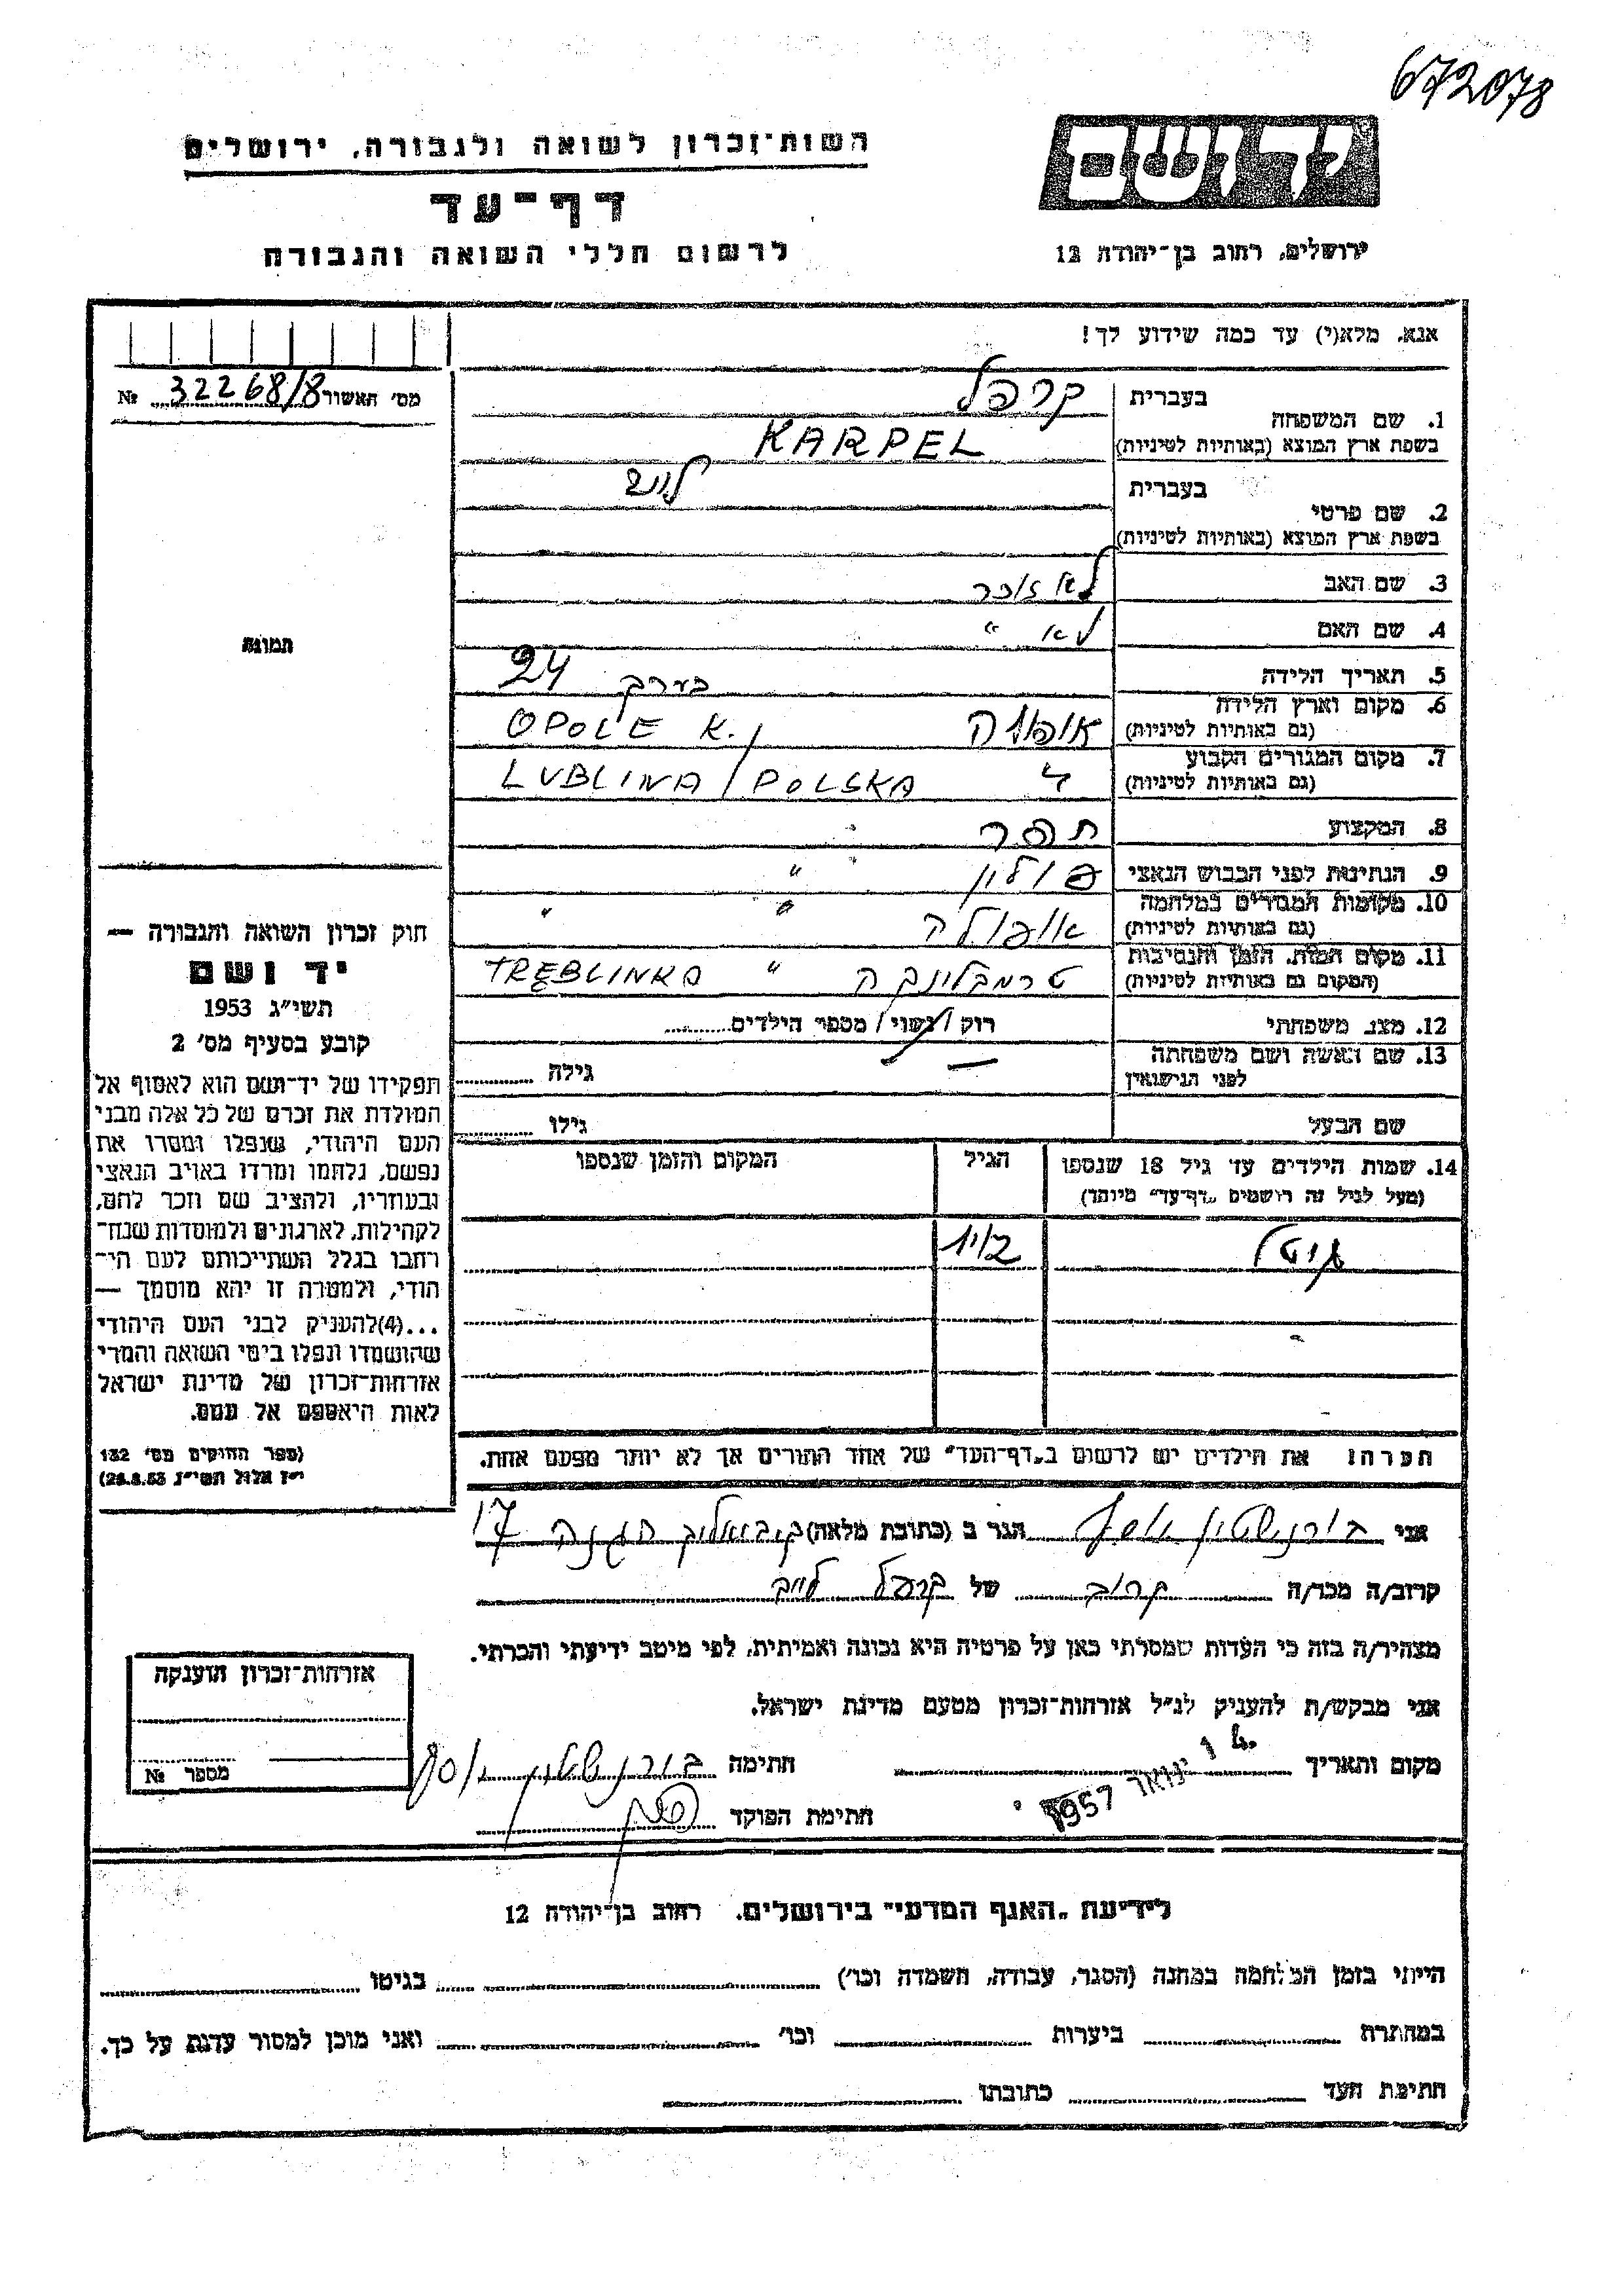 672078
יד ושם
ירושלים, רחוב בן־יהודה 12
רשות־זכרון לשואה ולגבורה, ירושלים
דף־עד
לרשום חללי השואה והגבורה
אנא, מלא(י) עד כמה שידוע לך!
מס' האשור 32268/8 №
1. שם המשפחה בעברית קרפל
בשפת ארץ המוצא (באותיות לטיניות) KARPEL
2. שם פרטי בעברית לייב
בשפת ארץ המוצא (באותיות לטיניות)
3. שם האב לא זוכר
4. שם האם לא "
5. תאריך הלידה בערך 24
6. מקום וארץ הלידה
(גם באותיות לטיניות) אופולה OPOLE K./
7. מקום המגורים הקבוע
(גם באותיות לטיניות) " LUBLINA / POLSKA
8. המקצוע תפר
9. הנתינות לפני הכבוש הנאצי פולין " "
10. מקומות המגורים במלחמה
(גם באותיות לטיניות) אופולה " "
11. מקום המות, הזמן והנסיבות
(המקום גם באותיות לטיניות) טרמבלינקה " TREBLINKA
12. מצב משפחתי רוק / נשוי / מספר הילדים
13. שם האשה ושם משפחתה
לפני הנישואין — גילה
שם הבעל גילו
14. שמות הילדים עד גיל 18 שנספו
(מעל לגיל זה רושמים "דף־עד" מיוחד)
הגיל
המקום והזמן שנספו
הערה: את הילדים יש לרשום ב"דף־העד" של אחד ההורים אך לא יותר מפעם אחת.
תמונה
חוק זכרון השואה והגבורה —
יד ושם
תשי"ג 1953
קובע בסעיף מס' 2
תפקידו של יד־ושם הוא לאסוף אל
המולדת את זכרם של כל אלה מבני
העם היהודי, שנפלו ומסרו את
נפשם, נלחמו ומרדו באויב הנאצי
ובעוזריו, ולהציב שם וזכר להם,
לקהילות, לארגונים ולמוסדות שנח־
רבו בגלל השתייכותם לעם הי־
הודי, ולמטרה זו יהא מוסמך —
...(4)להעניק לבני העם היהודי
שהושמדו ונפלו בימי השואה והמרי
אזרחות־זכרון של מדינת ישראל
לאות היאספם אל עמם.
(ספר החוקים מס' 132
י"ז אלול תשי"ג 28.8.53)
אני בורנשטין יוסף הגר ב (כתובת מלאה) 17
קרוב/ה מכר/ה קרוב של קרפל לייב
מצהיר/ה בזה כי העדות שמסרתי כאן על פרטיה היא נכונה ואמיתית, לפי מיטב ידיעתי והכרתי.
אני מבקש/ת להעניק לנ"ל אזרחות־זכרון מטעם מדינת ישראל.
מקום ותאריך ינואר 1957 חתימה בורנשטין יוסף
חתימת הפוקד
אזרחות־זכרון הוענקה
מספר №
לידיעת "האגף המדעי" בירושלים, רחוב בן־יהודה 12
הייתי בזמן המלחמה במחנה (הסגר, עבודה, השמדה וכו') בגיטו
במחתרת ביערות וכו' ואני מוכן למסור עדות על כך.
חתימת העד כתובתו